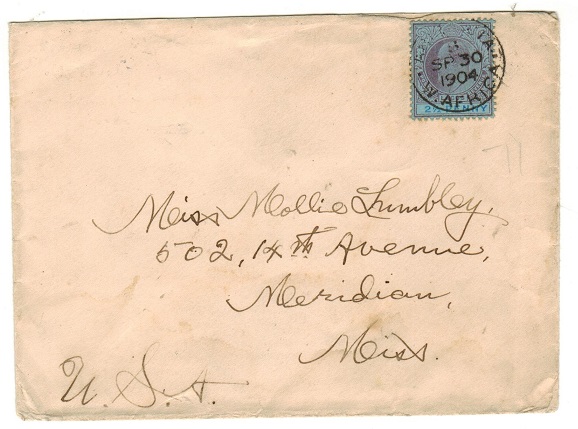 SP 30
1904
W. AFRICA
PENNY
Miss Mollie Lumbley,
502, 14th Avenue,
Meridian,
Miss.
U. S. A.